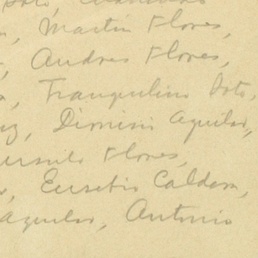 Soto,
Martin Flores,
Andres Flores,
Tranquilino Soto,
Dionisio Aguilar,
Flores,
Eusebio Caldera,
Aguilar, Antonio